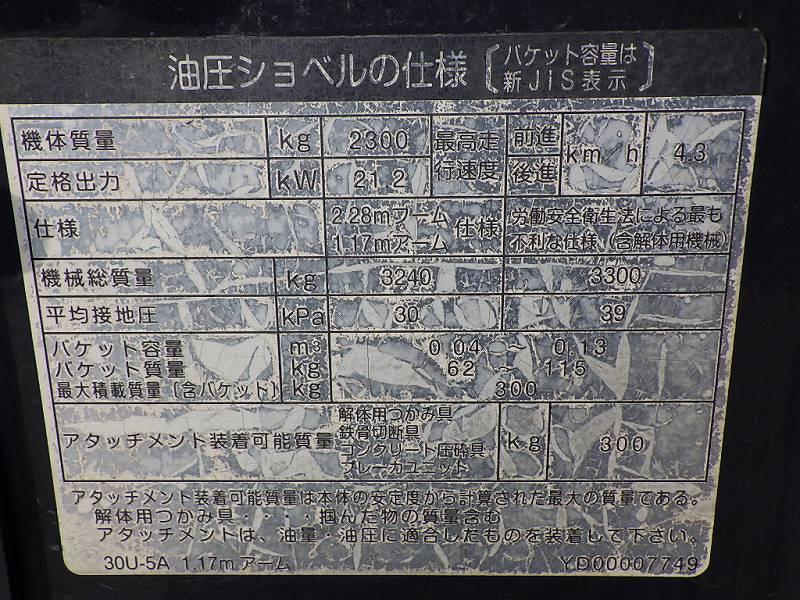 油圧ショベルの仕様 〔バケット容量は
新JIS表示〕
機体質量 kg 2300 最高走行速度 前進 km/h 4.3
定格出力 kW 21.2 後進
仕様 2.28mブーム 1.17mアーム 仕様 労働安全衛生法による最も不利な仕様(含解体用機械)
機械総質量 kg 3240 3300
平均接地圧 kPa 30 39
バケット容量 m³ 0.04 ~ 0.13
バケット質量 kg 62 ~ 115
最大積載質量(含バケット) kg 300
アタッチメント装着可能質量 解体用つかみ具 鉄骨切断具 コンクリート圧砕具 ブレーカユニット kg 300
アタッチメント装着可能質量は本体の安定度から計算された最大の質量である。
解体用つかみ具・・・・掴んだ物の質量含む
アタッチメントは、油量・油圧に適合したものを装着して下さい。
30U-5A 1.17mアーム YD00007749